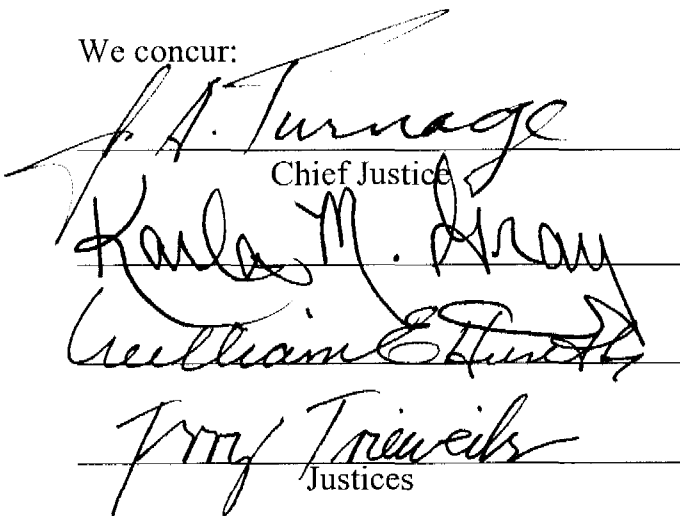 We concur:
J. A. Turnage
Chief Justice
Karla M. Gray
William E Hunt Sr
Terry Trieweiler
Justices